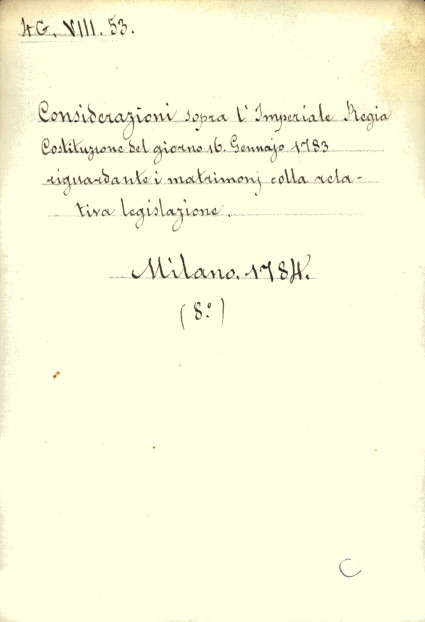 4G. VIII. 53.
Considerazioni sopra l'Imperiale Regia
Costituzione del giorno 16. Gennajo 1783
riguardante i matrimonj colla rela-
tiva legislazione.
Milano. 1784.
(8.°)
C